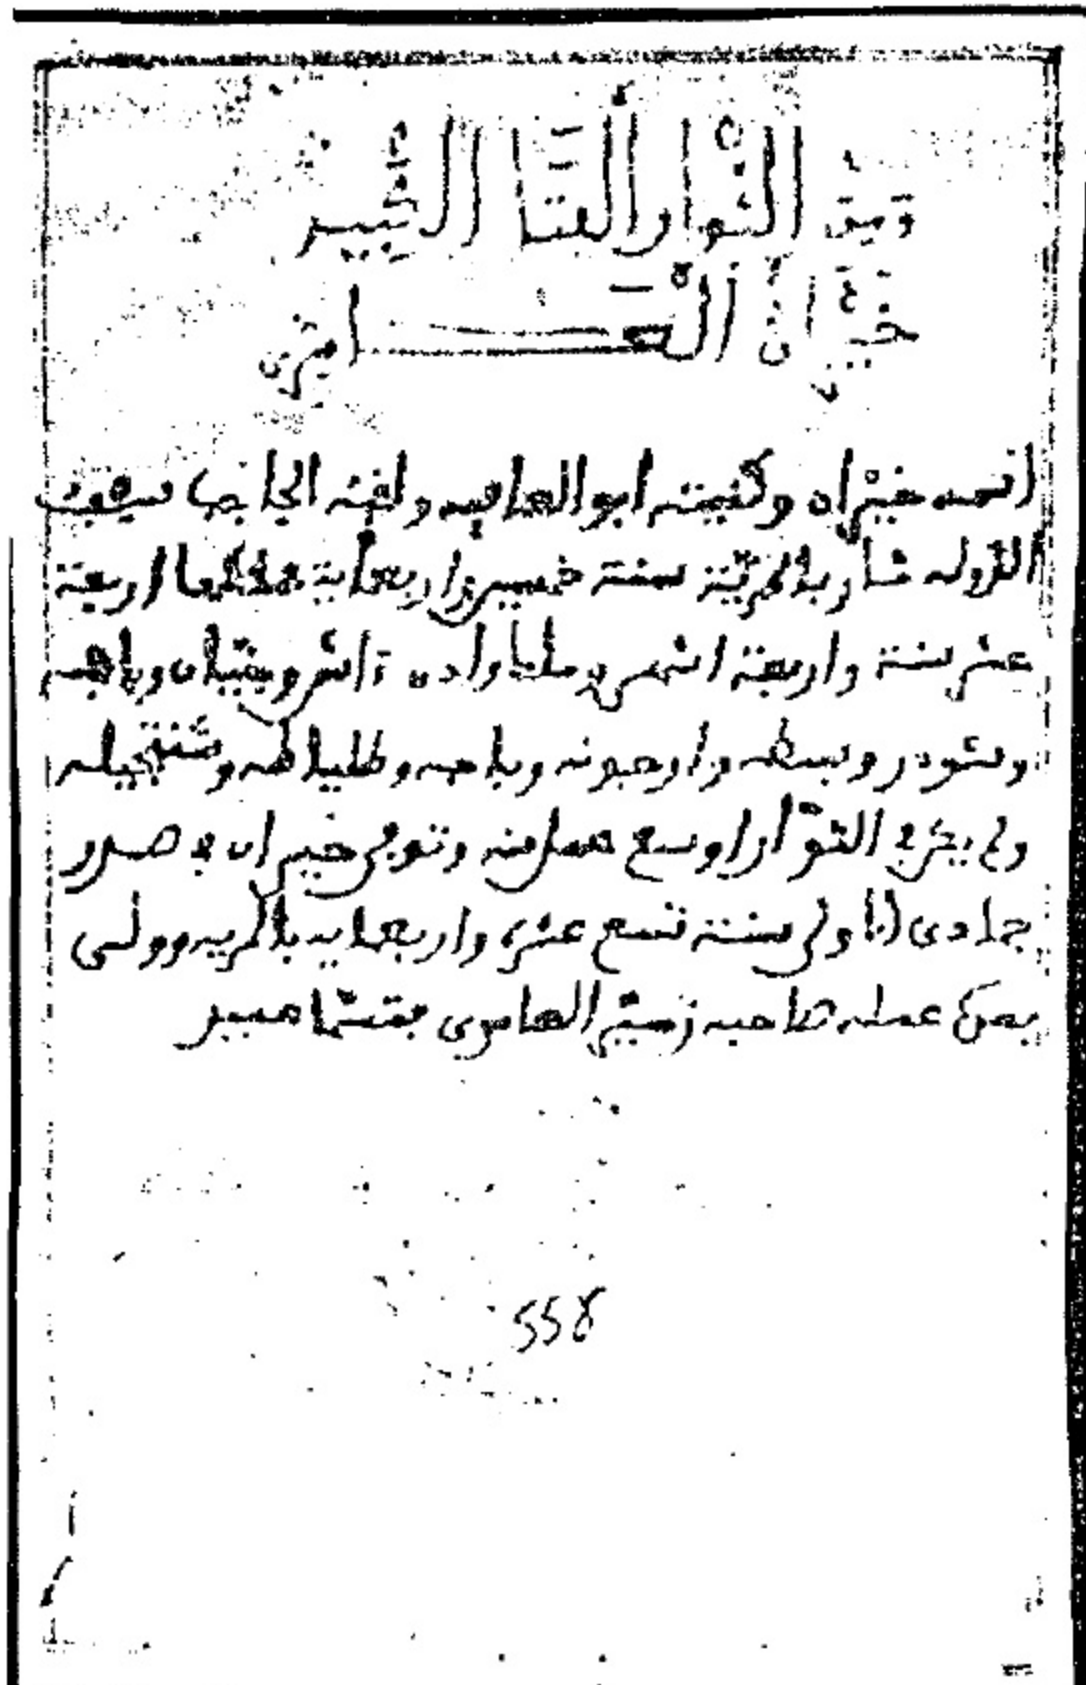 ومن الثوار الفتا الشهير
خَيْرَانُ الْعَامِرِي
اسمه خيران وكنيته ابو العافيه ولقبه الحاجب
الدوله ثار بالمرية سنة خمس واربعماية ملكها اربعة
عشر سنة واربعة اشهر واش وجيان وباغه
وشوذر وبسطه وارجونه وباجه وطليطله وشنتجيله
ولم يكن في الثوّار اوسع عمل منه وتوفى خيران في صدر
جمادى الاولى سنة تسع عشر واربعمايه بالمريه وولى
بعده عمله صاحبه زهير العامري